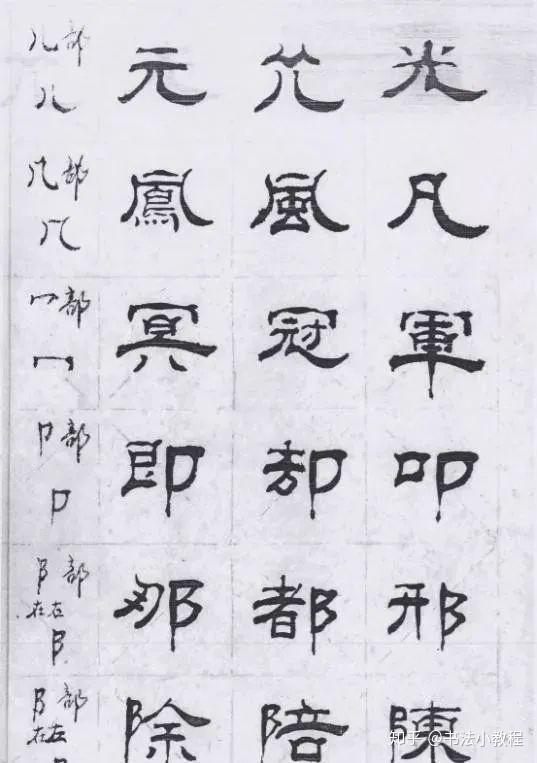 儿部 元 光
儿
几部 鳳 風 凡
几
冖部 冥 冠 軍
冖
卩部 即 却 叩
卩
阝部 那 都 邪
在右
阝
阝部 除 陪 陳
在左
知乎 @书法小教程